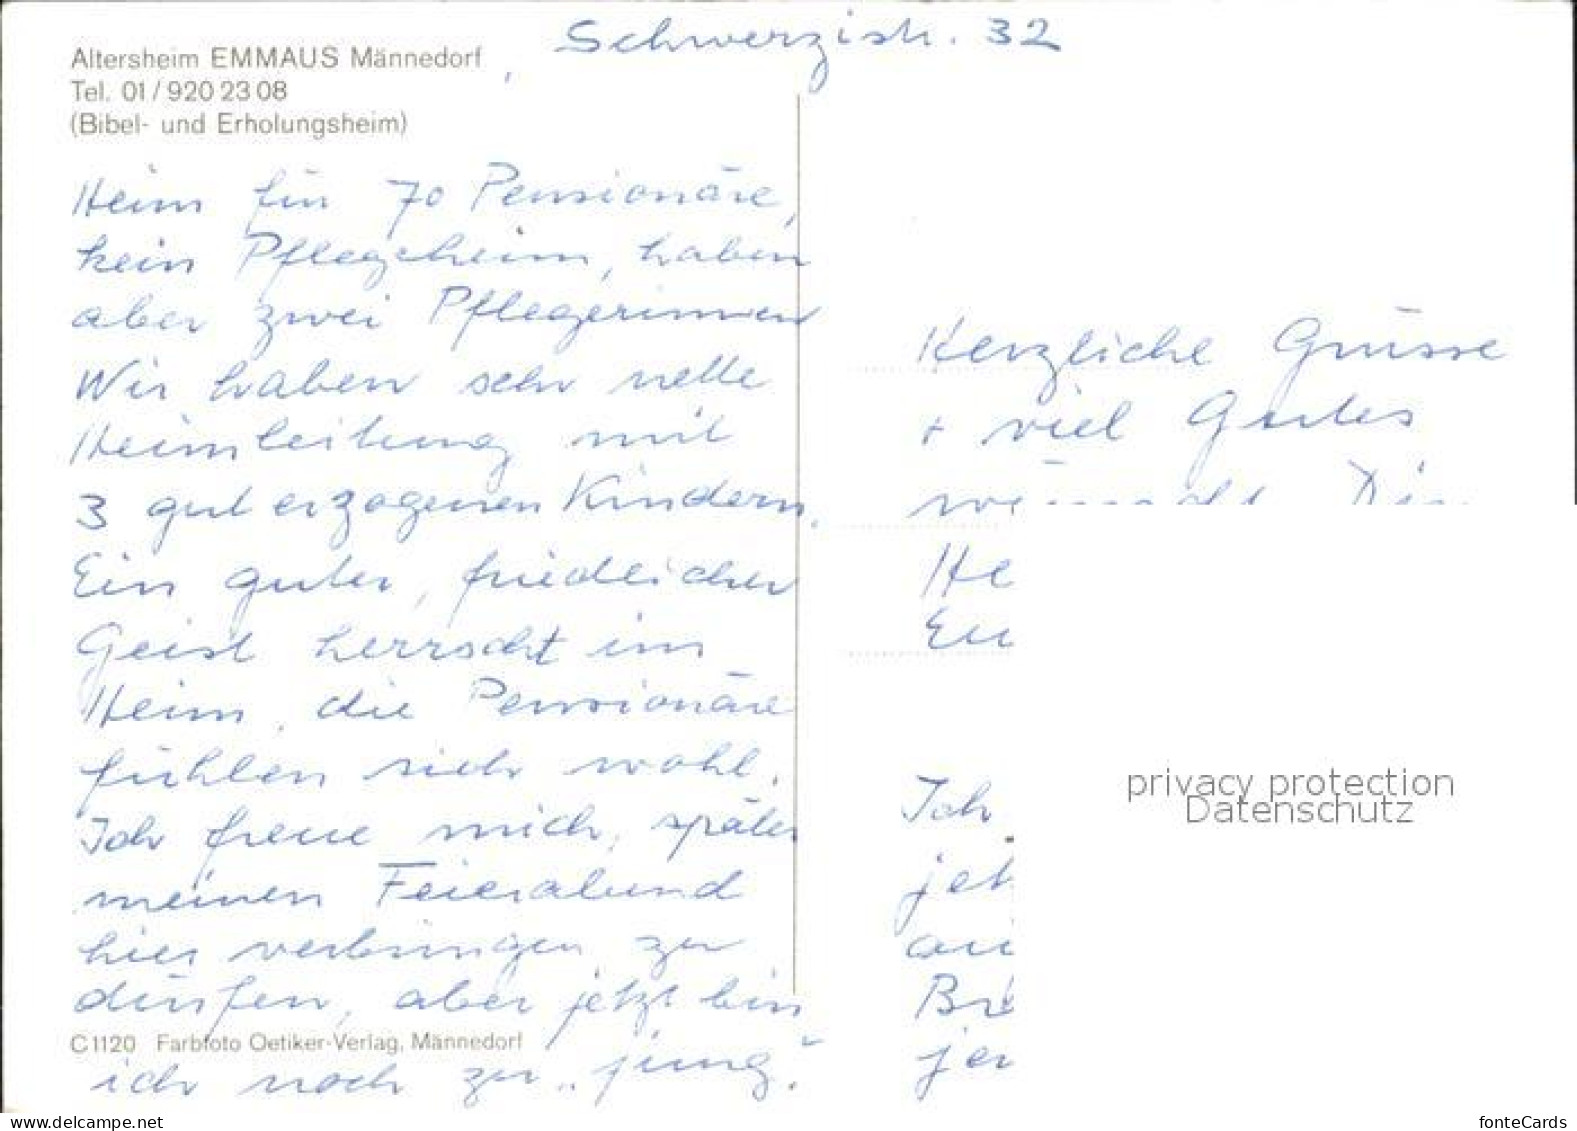 Schwerzistr. 32
Altersheim EMMAUS Männedorf
Tel. 01/920 23 08
(Bibel- und Erholungsheim)
Heim für 70 Pensionäre,
kein Pflegeheim, haben
aber zwei Pflegerinnen
Wir haben sehr nette
Heimleitung mit
3 gut erzogenen Kindern.
Ein guter, friedlicher
Geist herrscht im
Heim, die Pensionäre
fühlen sich wohl.
Ich freue mich, später
meinen Feierabend
hier verbringen zu
dürfen, aber jetzt bin
C1120 Farbfoto Oetiker-Verlag, Männedorf
ich noch zu „jung".
Herzliche Grüsse
+ viel Gutes
He
Eu
Ich
jet
Br
privacy protection
Datenschutz
www.delcampe.net
fonteCards